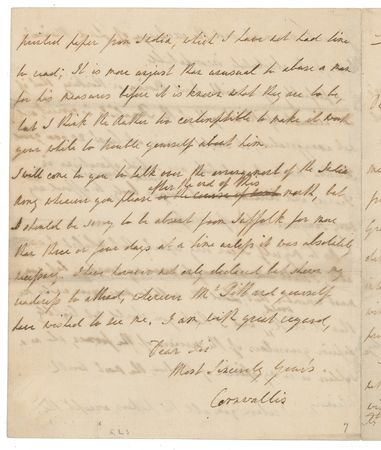 printed paper from India, which I have not had time
to read; It is more unjust than unusual to abuse a man
for his measures before it is known what they are to be,
but I think the Author too contemptible to make it worth
your while to trouble yourself about him.
I will come to you to talk over the arrangement of the India
Army whenever you please
after the end of this
in the course of next month, but
I should be sorry to be absent from Suffolk for more
than three or four days at a time unless it was absolutely
necessary. I have however not only declared but shewn my
readiness to attend, whenever Mr. Pitt and yourself
have wished to see me. I am, with great regard,
Dear Sir
Most Sincerely Yours
Cornwallis
7